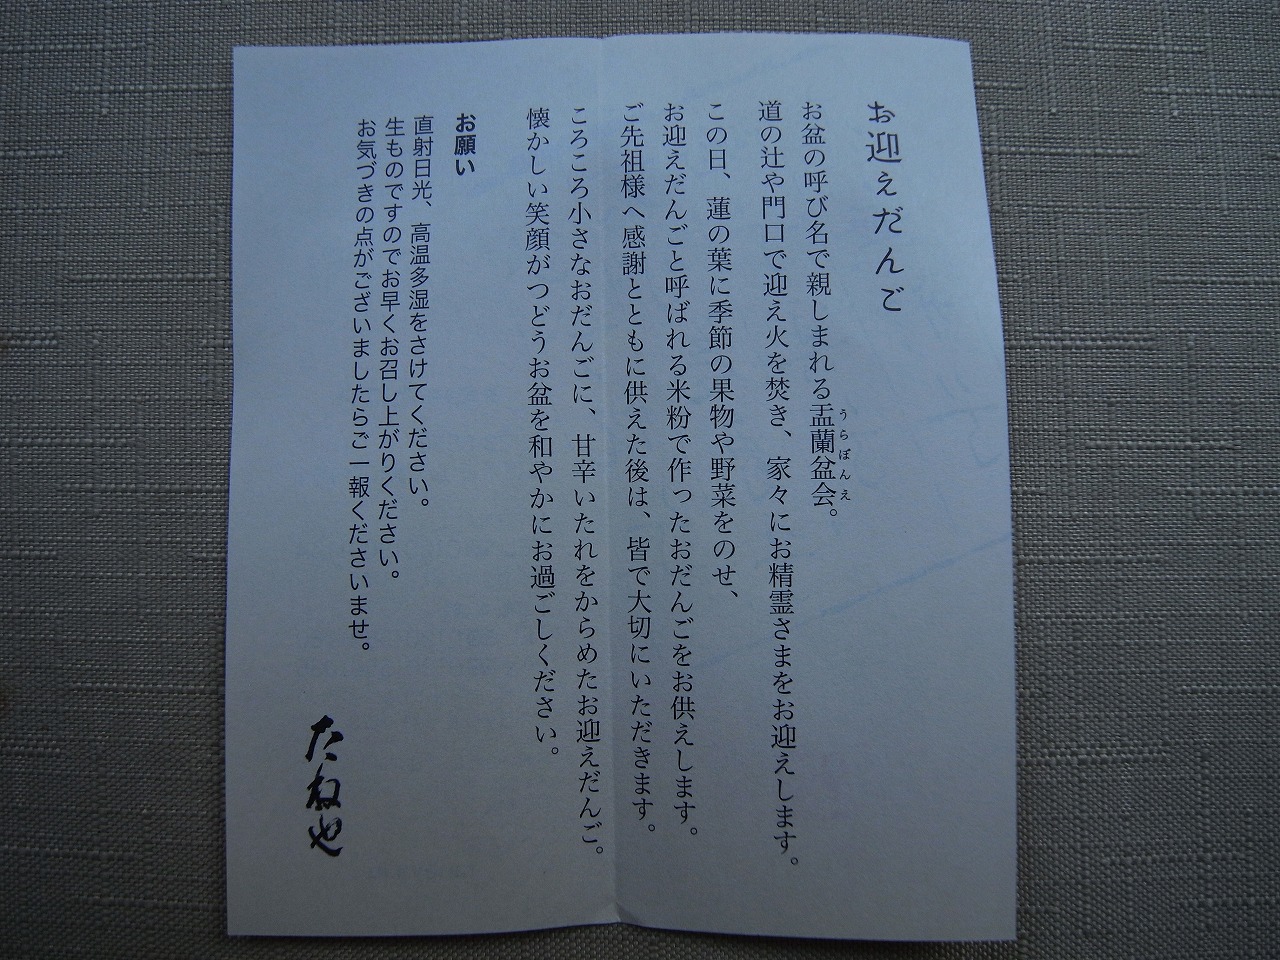 お迎えだんご
お盆の呼び名で親しまれる盂蘭盆会。
うらぼんえ
道の辻や門口で迎え火を焚き、家々にお精霊さまをお迎えします。
この日、蓮の葉に季節の果物や野菜をのせ、
お迎えだんごと呼ばれる米粉で作ったおだんごをお供えします。
ご先祖様へ感謝とともに供えた後は、皆で大切にいただきます。
ころころ小さなおだんごに、甘辛いたれをからめたお迎えだんご。
懐かしい笑顔がつどうお盆を和やかにお過ごしください。
お願い
直射日光、高温多湿をさけてください。
生ものですのでお早くお召し上がりください。
お気づきの点がございましたらご一報くださいませ。
たねや